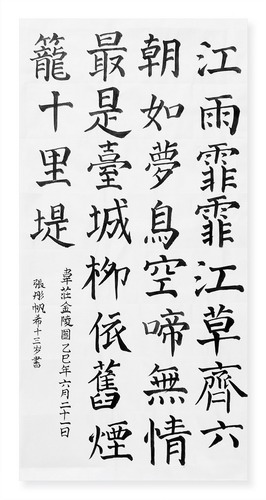 江雨霏霏江草齊六
朝如夢鳥空啼無情
最是臺城柳依舊煙
籠十里堤
韋莊金陵圖乙巳年六月二十一日
張彤帆希十三岁書